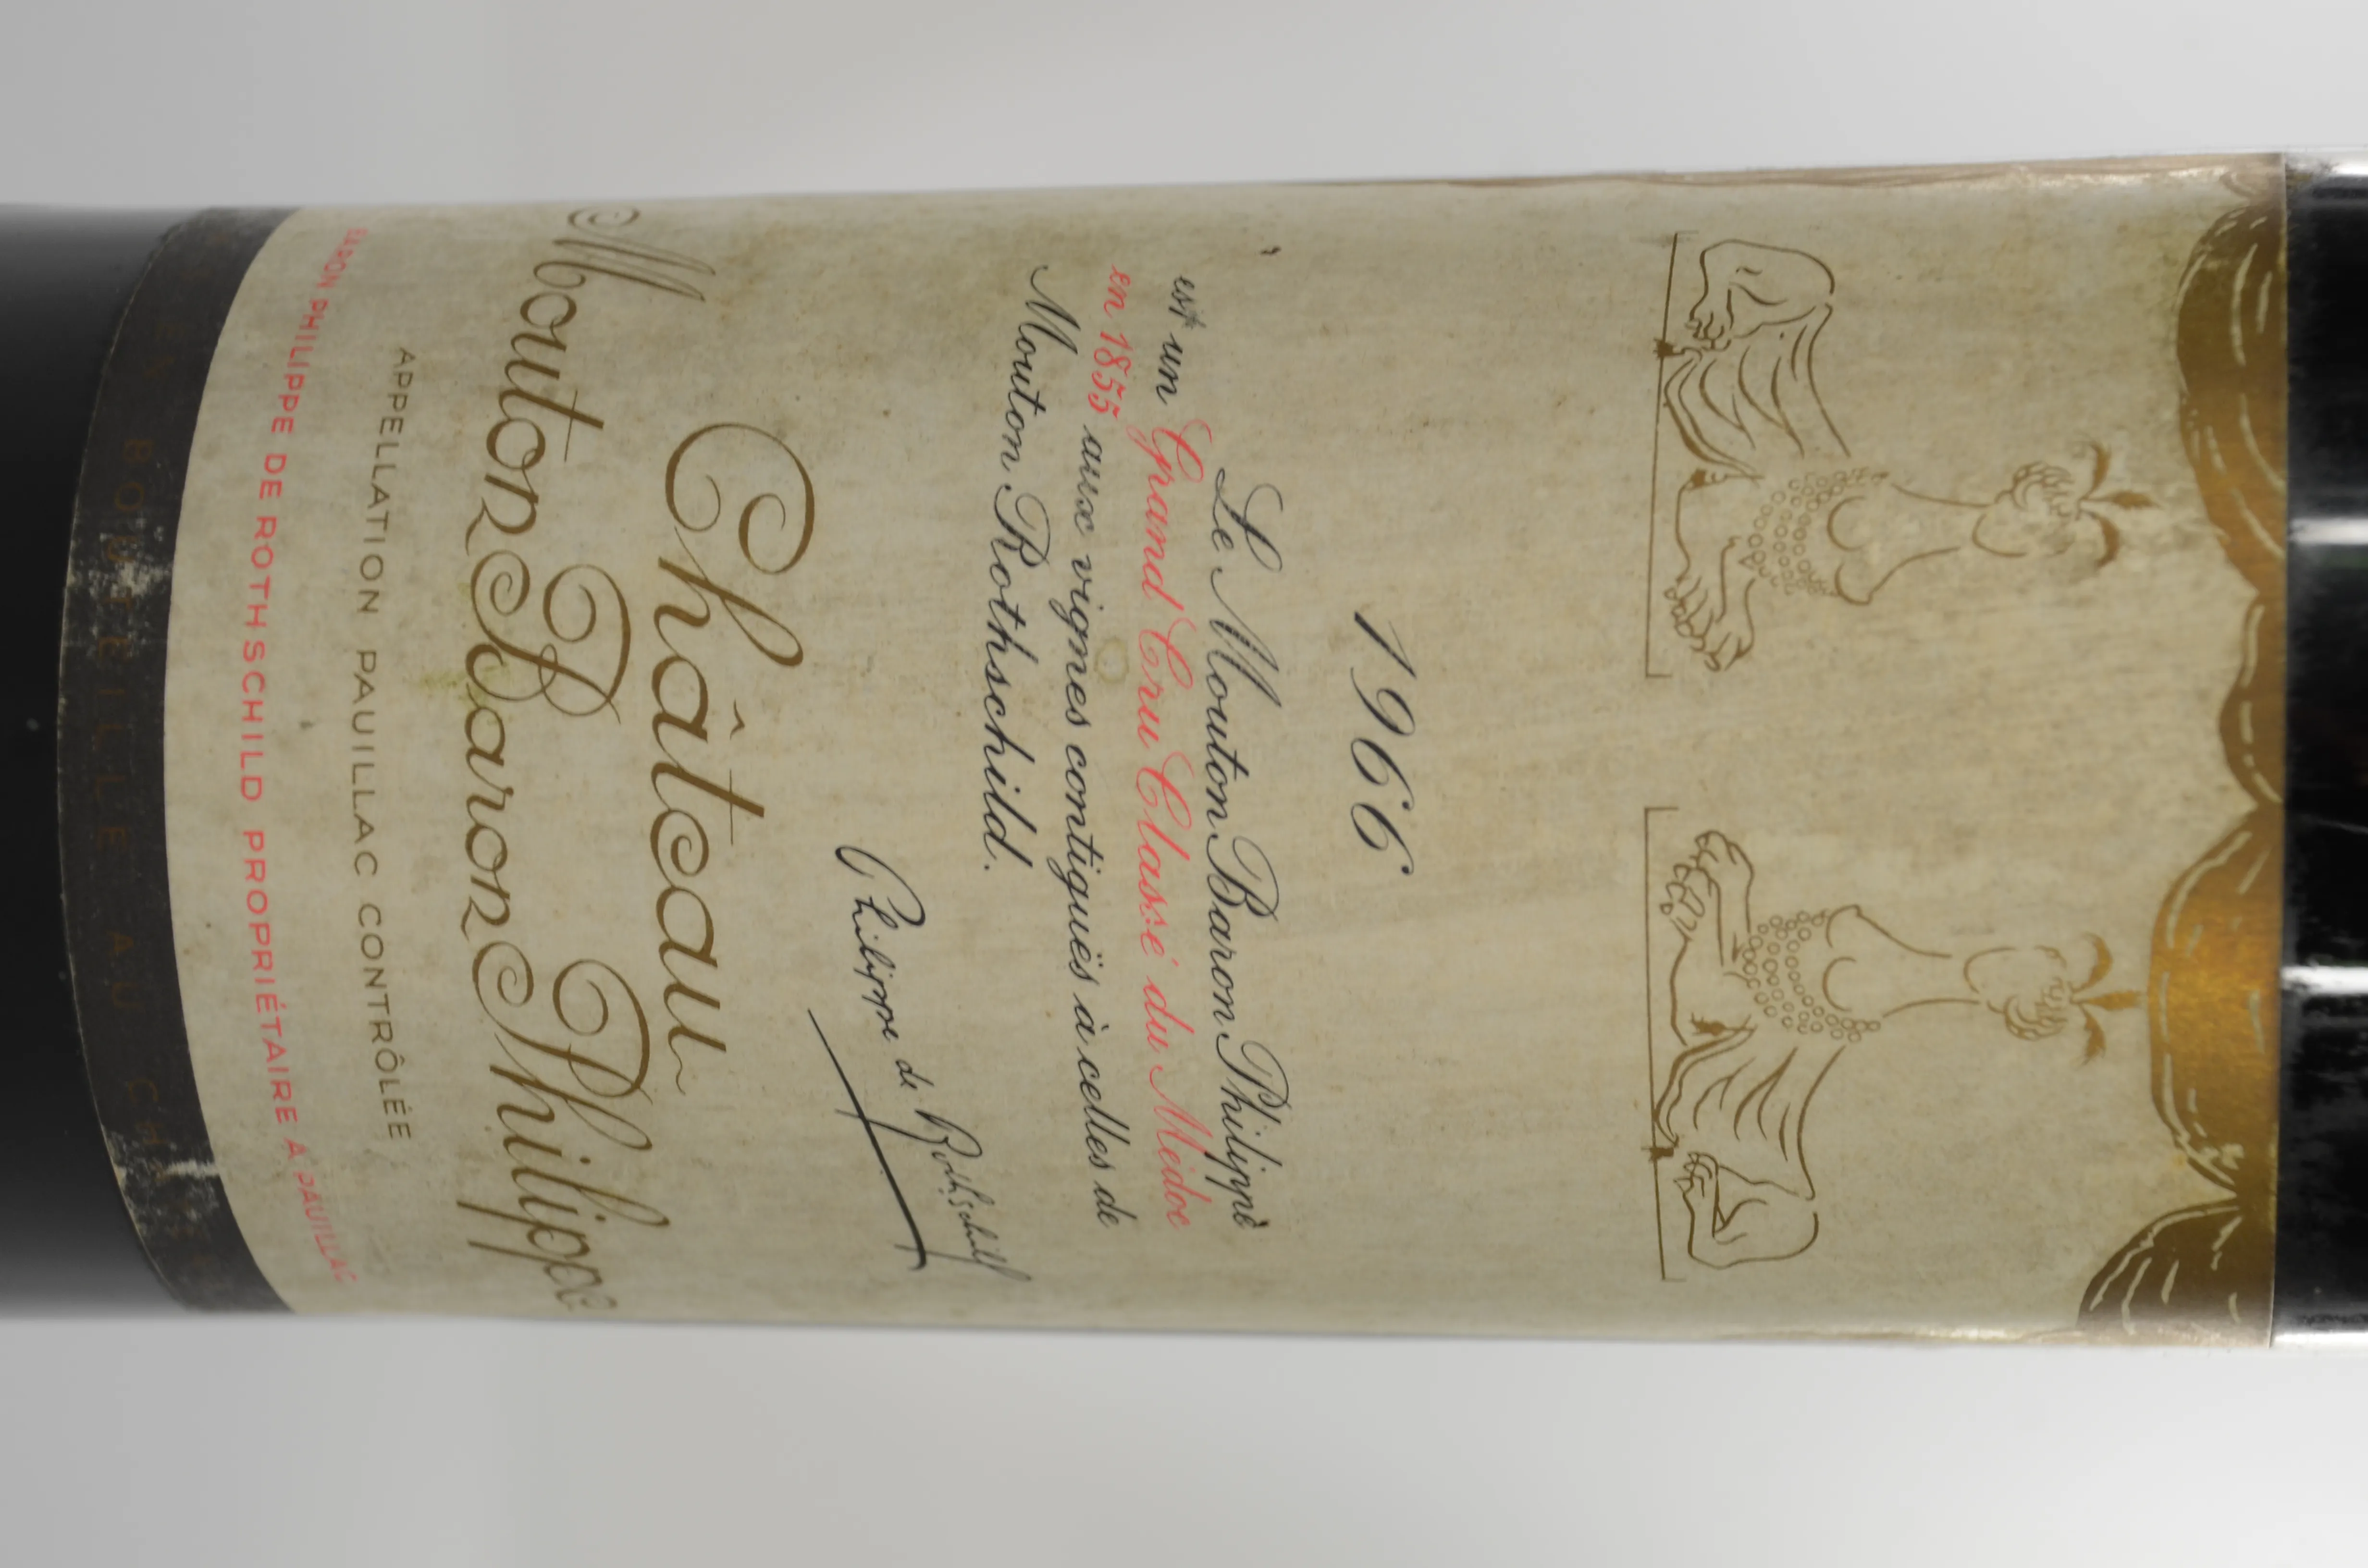 1966
Le Mouton Baron Philippe
est un Grand Cru Classé du Médoc
en 1855 aux vignes contiguës à celles de
Mouton Rothschild.
Philippe de Rothschild
Château
Mouton Baron Philippe
APPELLATION PAUILLAC CONTRÔLÉE
BARON PHILIPPE DE ROTHSCHILD PROPRIÉTAIRE A PAUILLAC
BOUTEILLE AU